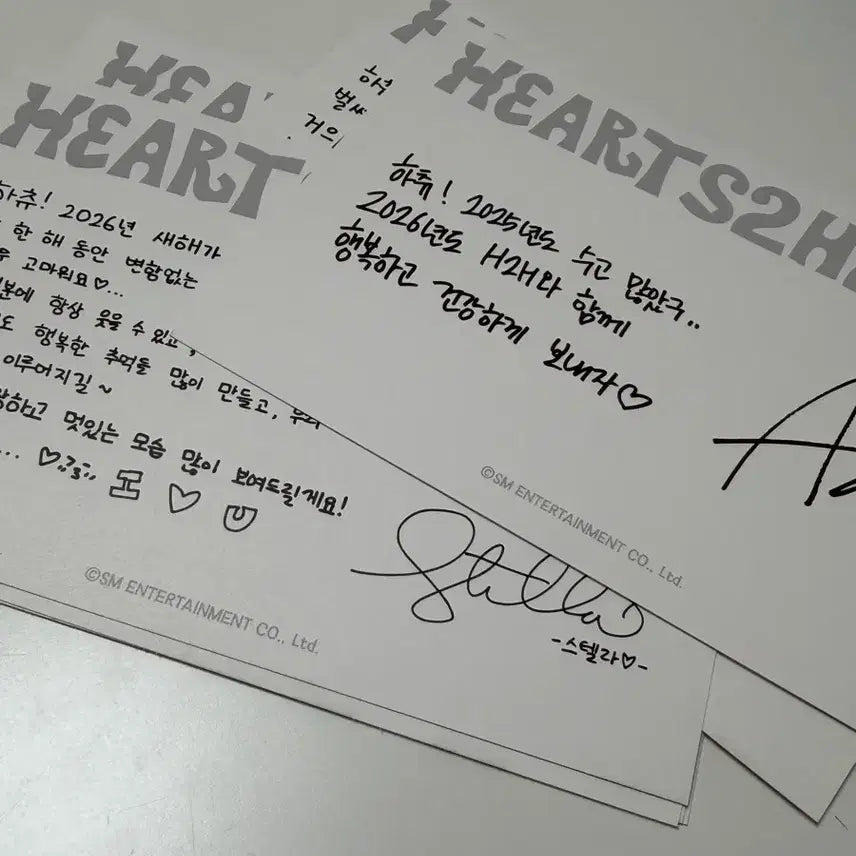 HEART
하츄! 2026년 새해가
한 해 동안 변함없는
고마워요♡...
항상 웃을 수 있고,
행복한 추억들 많이 만들고, 우리
이루어지길~
멋있는 모습 많이 보여드릴게요!
©SM ENTERTAINMENT CO., Ltd.
Stella
-스텔라♡-
하츄
벌써
거의
HEARTS2H
하츄! 2025년도 수고 많았구..
2026년도 H2H와 함께
행복하고 건강하게 보내자♡
©SM ENTERTAINMENT CO., Ltd.